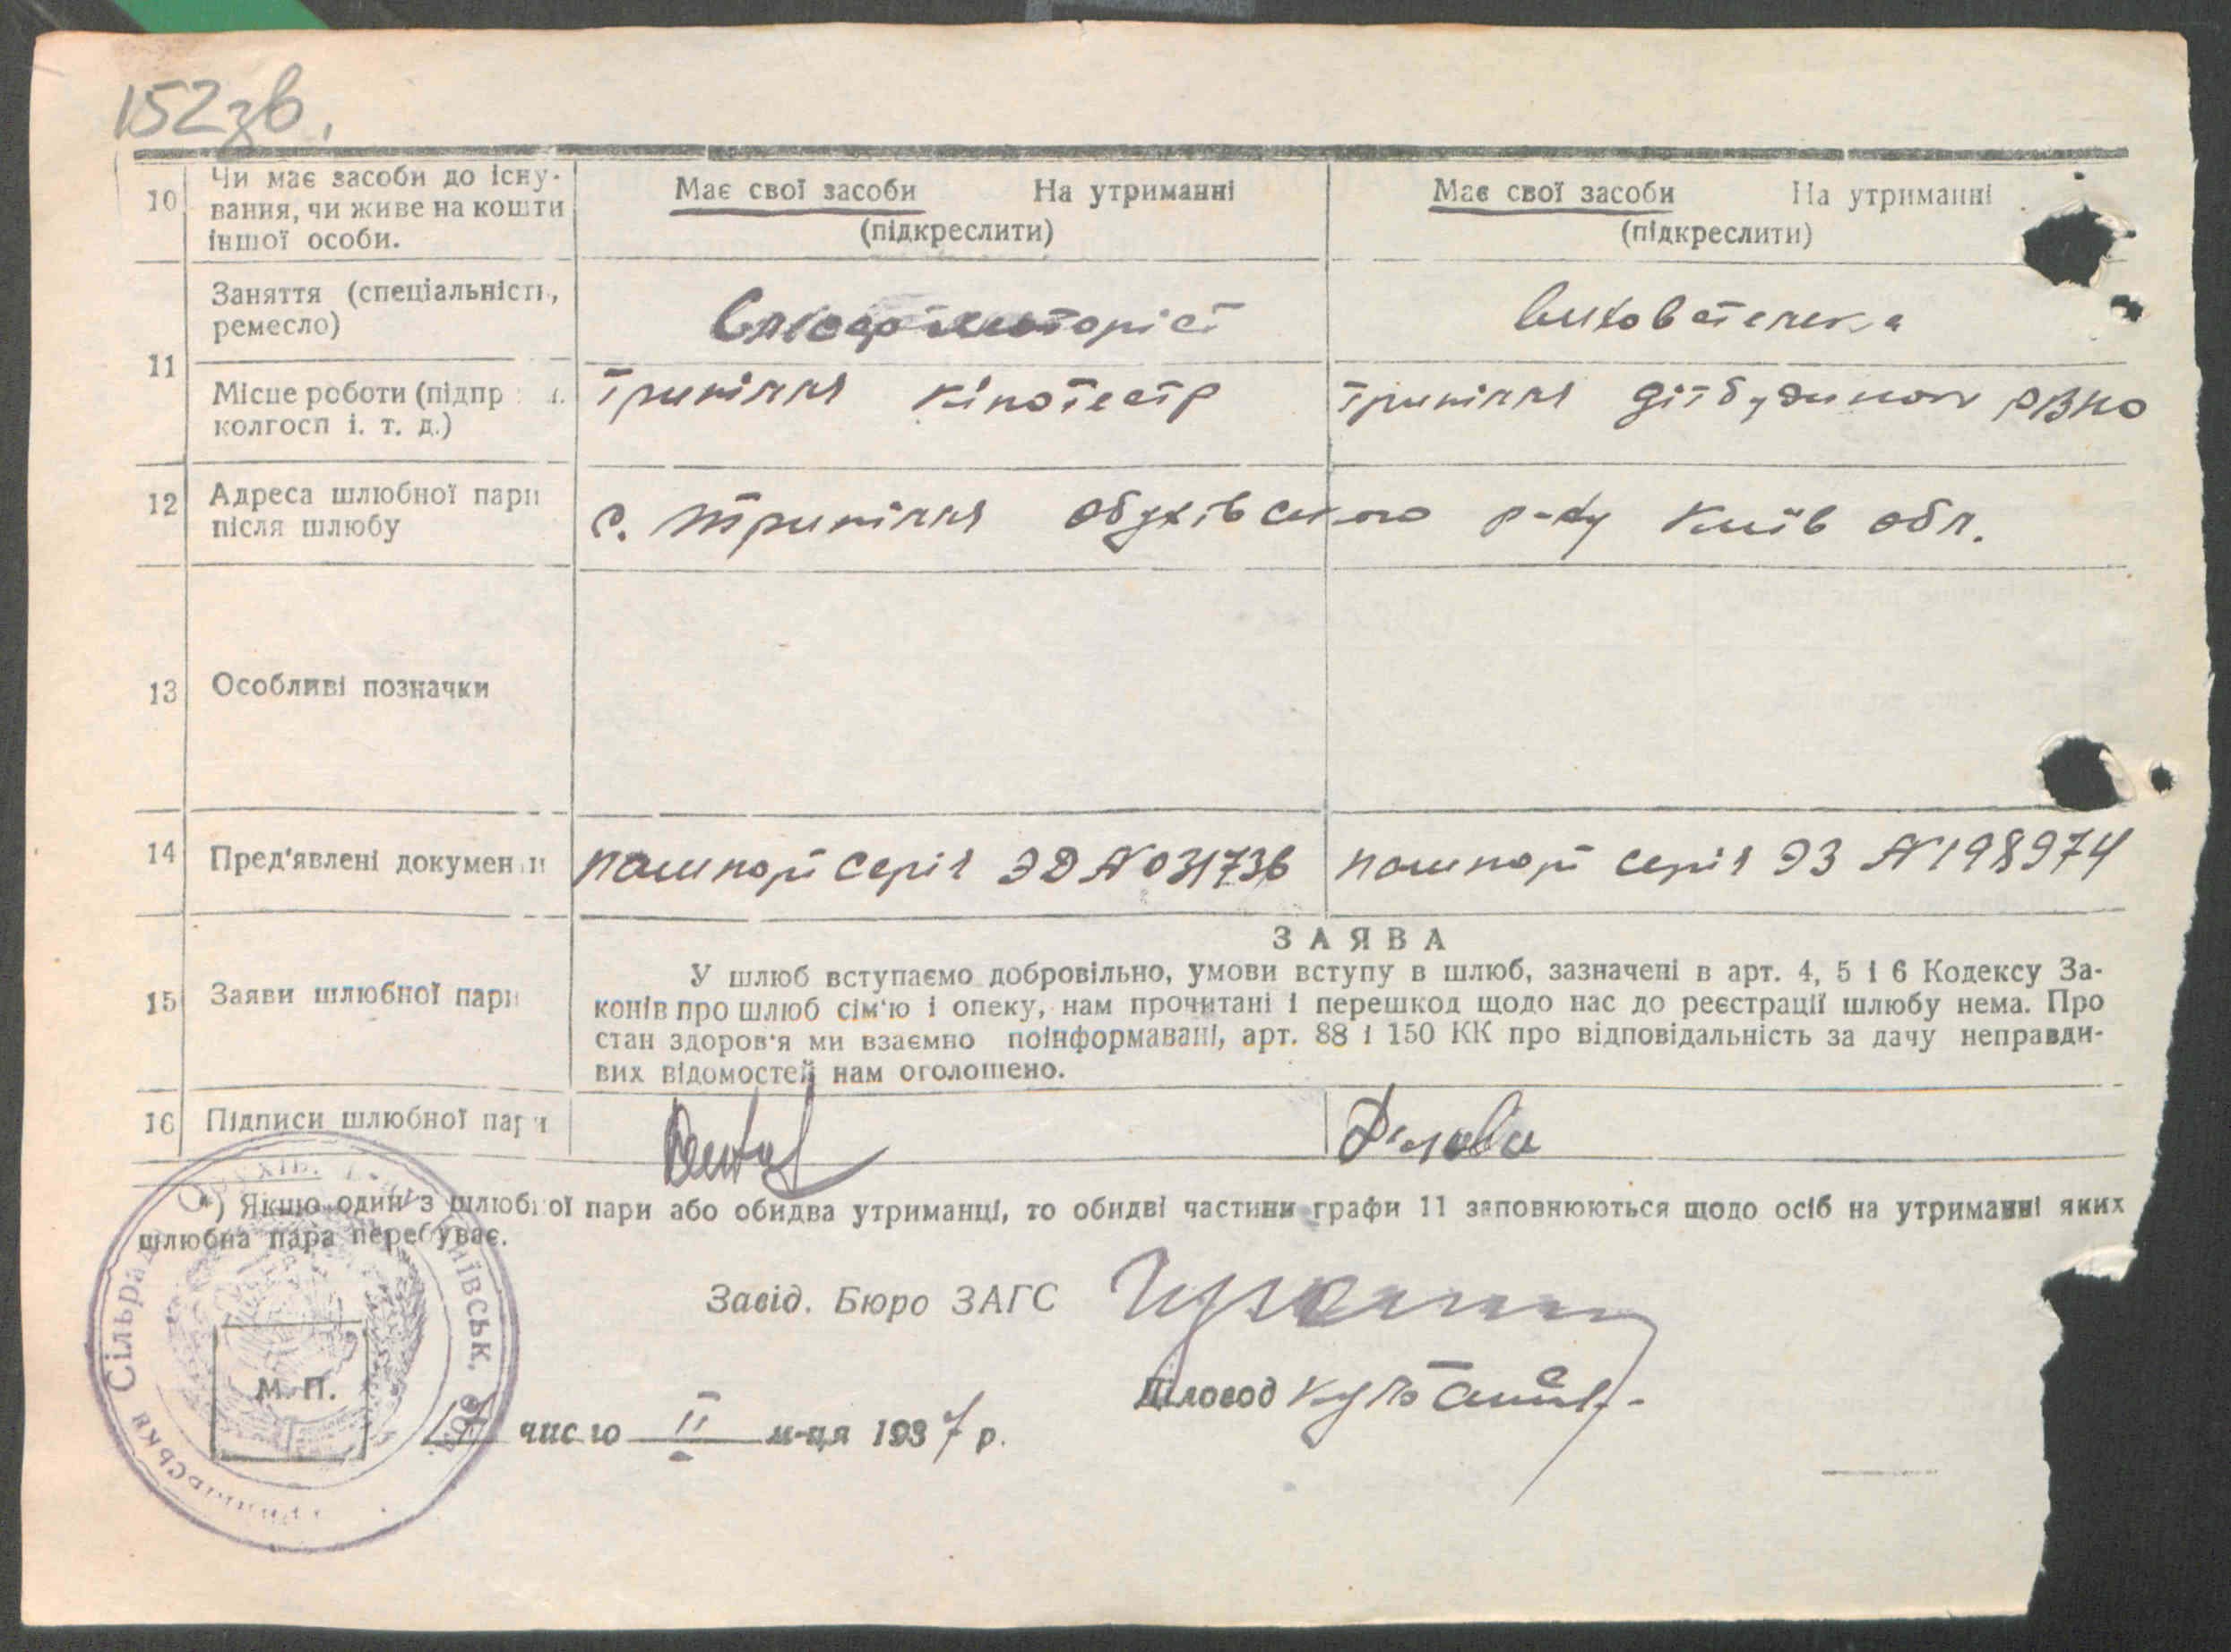 152зв.
10 Чи має засоби до існу-
вання, чи живе на кошти
іншої особи.
Має свої засоби На утриманні
(підкреслити)
Має свої засоби На утриманні
(підкреслити)
11
Заняття (спеціальність,
ремесло)
Слюсар моторіст
вихователька
Місце роботи (підпр
колгосп і. т. д.)
Трипілля Кінотеатр
Трипілля дітбудинок РВНО
12 Адреса шлюбної пари
після шлюбу
с. Трипілля Обухівського р-ну Київ обл.
13 Особливі позначки
14 Пред'явлені докумен и
пашпорт серія ЭД № 031736
пашпорт серія ЭЗ № 198974
15 Заяви шлюбної пари
ЗАЯВА
У шлюб вступаємо добровільно, умови вступу в шлюб, зазначені в арт. 4, 5 і 6 Кодексу За-
конів про шлюб сім'ю і опеку, нам прочитані і перешкод щодо нас до реєстрації шлюбу нема. Про
стан здоров'я ми взаємно поінформавані, арт. 88 і 150 КК про відповідальність за дачу неправди-
вих відомостей нам оголошено.
16 Підписи шлюбної пари
*) Якщо один з шлюбної пари або обидва утриманці, то обидві частини графи 11 заповнюються щодо осіб на утриманні яких
шлюбна пара перебуває.
Завід. Бюро ЗАГС
Діловод
М. П.
число II м-ця 1937 р.
Сільрада